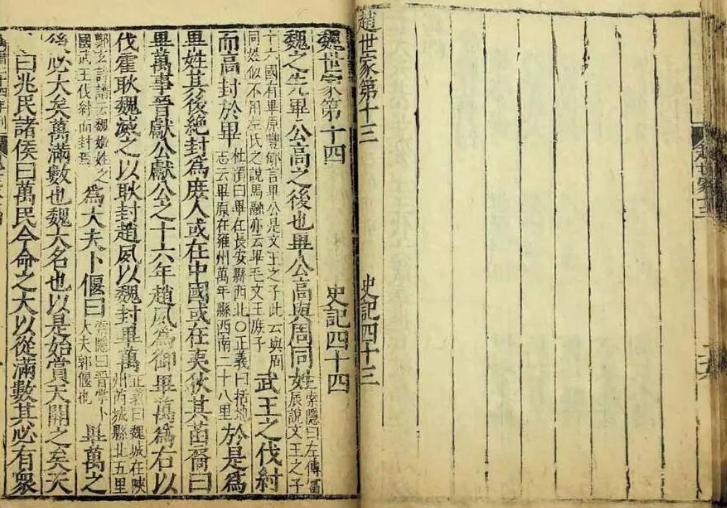 趙世家第十三 史記四十三
魏世家第十四 史記四十四
魏之先畢公高之後也畢公高與周同姓索隱曰左傳富辰說文王之子
十六國有畢原豐郇言畢公是文王之子此云與周同姓似不用左氏之說馬融亦云畢毛文王庶子武王之伐紂
而高封於畢杜預曰畢在長安縣西北○正義曰括地志云畢原在雍州萬年縣西南二十八里於是爲
畢姓其後絕封爲庶人或在中國或在夷狄其苗裔曰
畢萬事晉獻公獻公之十六年趙夙爲御畢萬爲右以
伐霍耿魏滅之以耿封趙夙以魏封畢萬正義曰魏城在陝州芮城縣北五里
鄭玄詩譜云魏姬姓之國武王伐紂而封焉爲大夫卜偃曰索隱曰晉掌卜大夫郭偃也畢萬之
後必大矣萬滿數也魏大名也以是始賞天開之矣天
曰兆民諸侯曰萬民今命之大以從滿數其必有衆